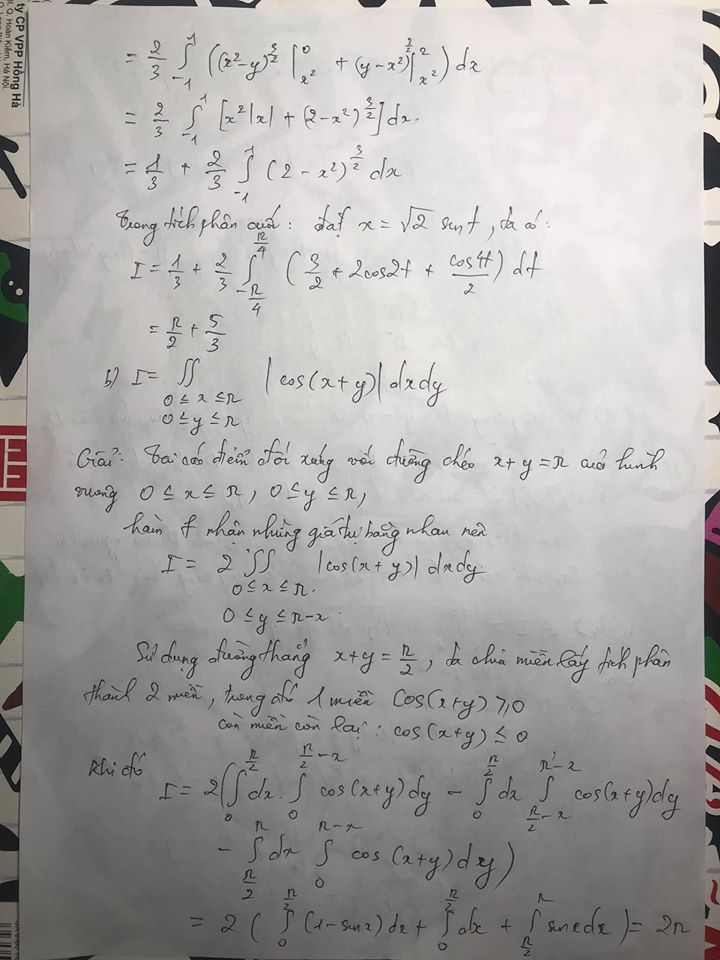 ty CP VPP Hồng Hà
Q. Hoàn Kiếm, Hà Nội.
= 2/3 ∫_{-1}^{1} ((x²-y)^{3/2} |_{x²}^{0} + (y-x²)^{3/2} |_{x²}^{2}) dx
= 2/3 ∫_{-1}^{1} [x²|x| + (2-x²)^{3/2}] dx.
= 1/3 + 2/3 ∫_{-1}^{1} (2-x²)^{3/2} dx
Trong tích phân cuối: đặt x = √2 sint, ta có:
I = 1/3 + 2/3 ∫_{-π/4}^{π/4} (3/2 + 2cos2t + cos4t/2) dt
= π/2 + 5/3
b) I = ∬_{0≤x≤π, 0≤y≤π} |cos(x+y)| dxdy
Giải: Tại các điểm đối xứng với đường chéo x+y=π của hình
vuông 0≤x≤π, 0≤y≤π,
hàm f nhận những giá trị bằng nhau nên
I = 2 ∬_{0≤x≤π, 0≤y≤π-x} |cos(x+y)| dxdy.
Sử dụng đường thẳng x+y = π/2, ta chia miền lấy tích phân
thành 2 miền, trong đó 1 miền Cos(x+y) ≥ 0
còn miền còn lại: cos(x+y) ≤ 0
Khi đó I = 2(∫_{0}^{π/2} dx. ∫_{0}^{π/2-x} cos(x+y)dy - ∫_{0}^{π/2} dx ∫_{π/2-x}^{π-x} cos(x+y)dy
- ∫_{π/2}^{π} dx ∫_{0}^{π-x} cos(x+y)dy)
= 2(∫_{0}^{π/2} (1-sinx)dx + ∫_{0}^{π/2} dx + ∫_{π/2}^{π} sinxdx) = 2π